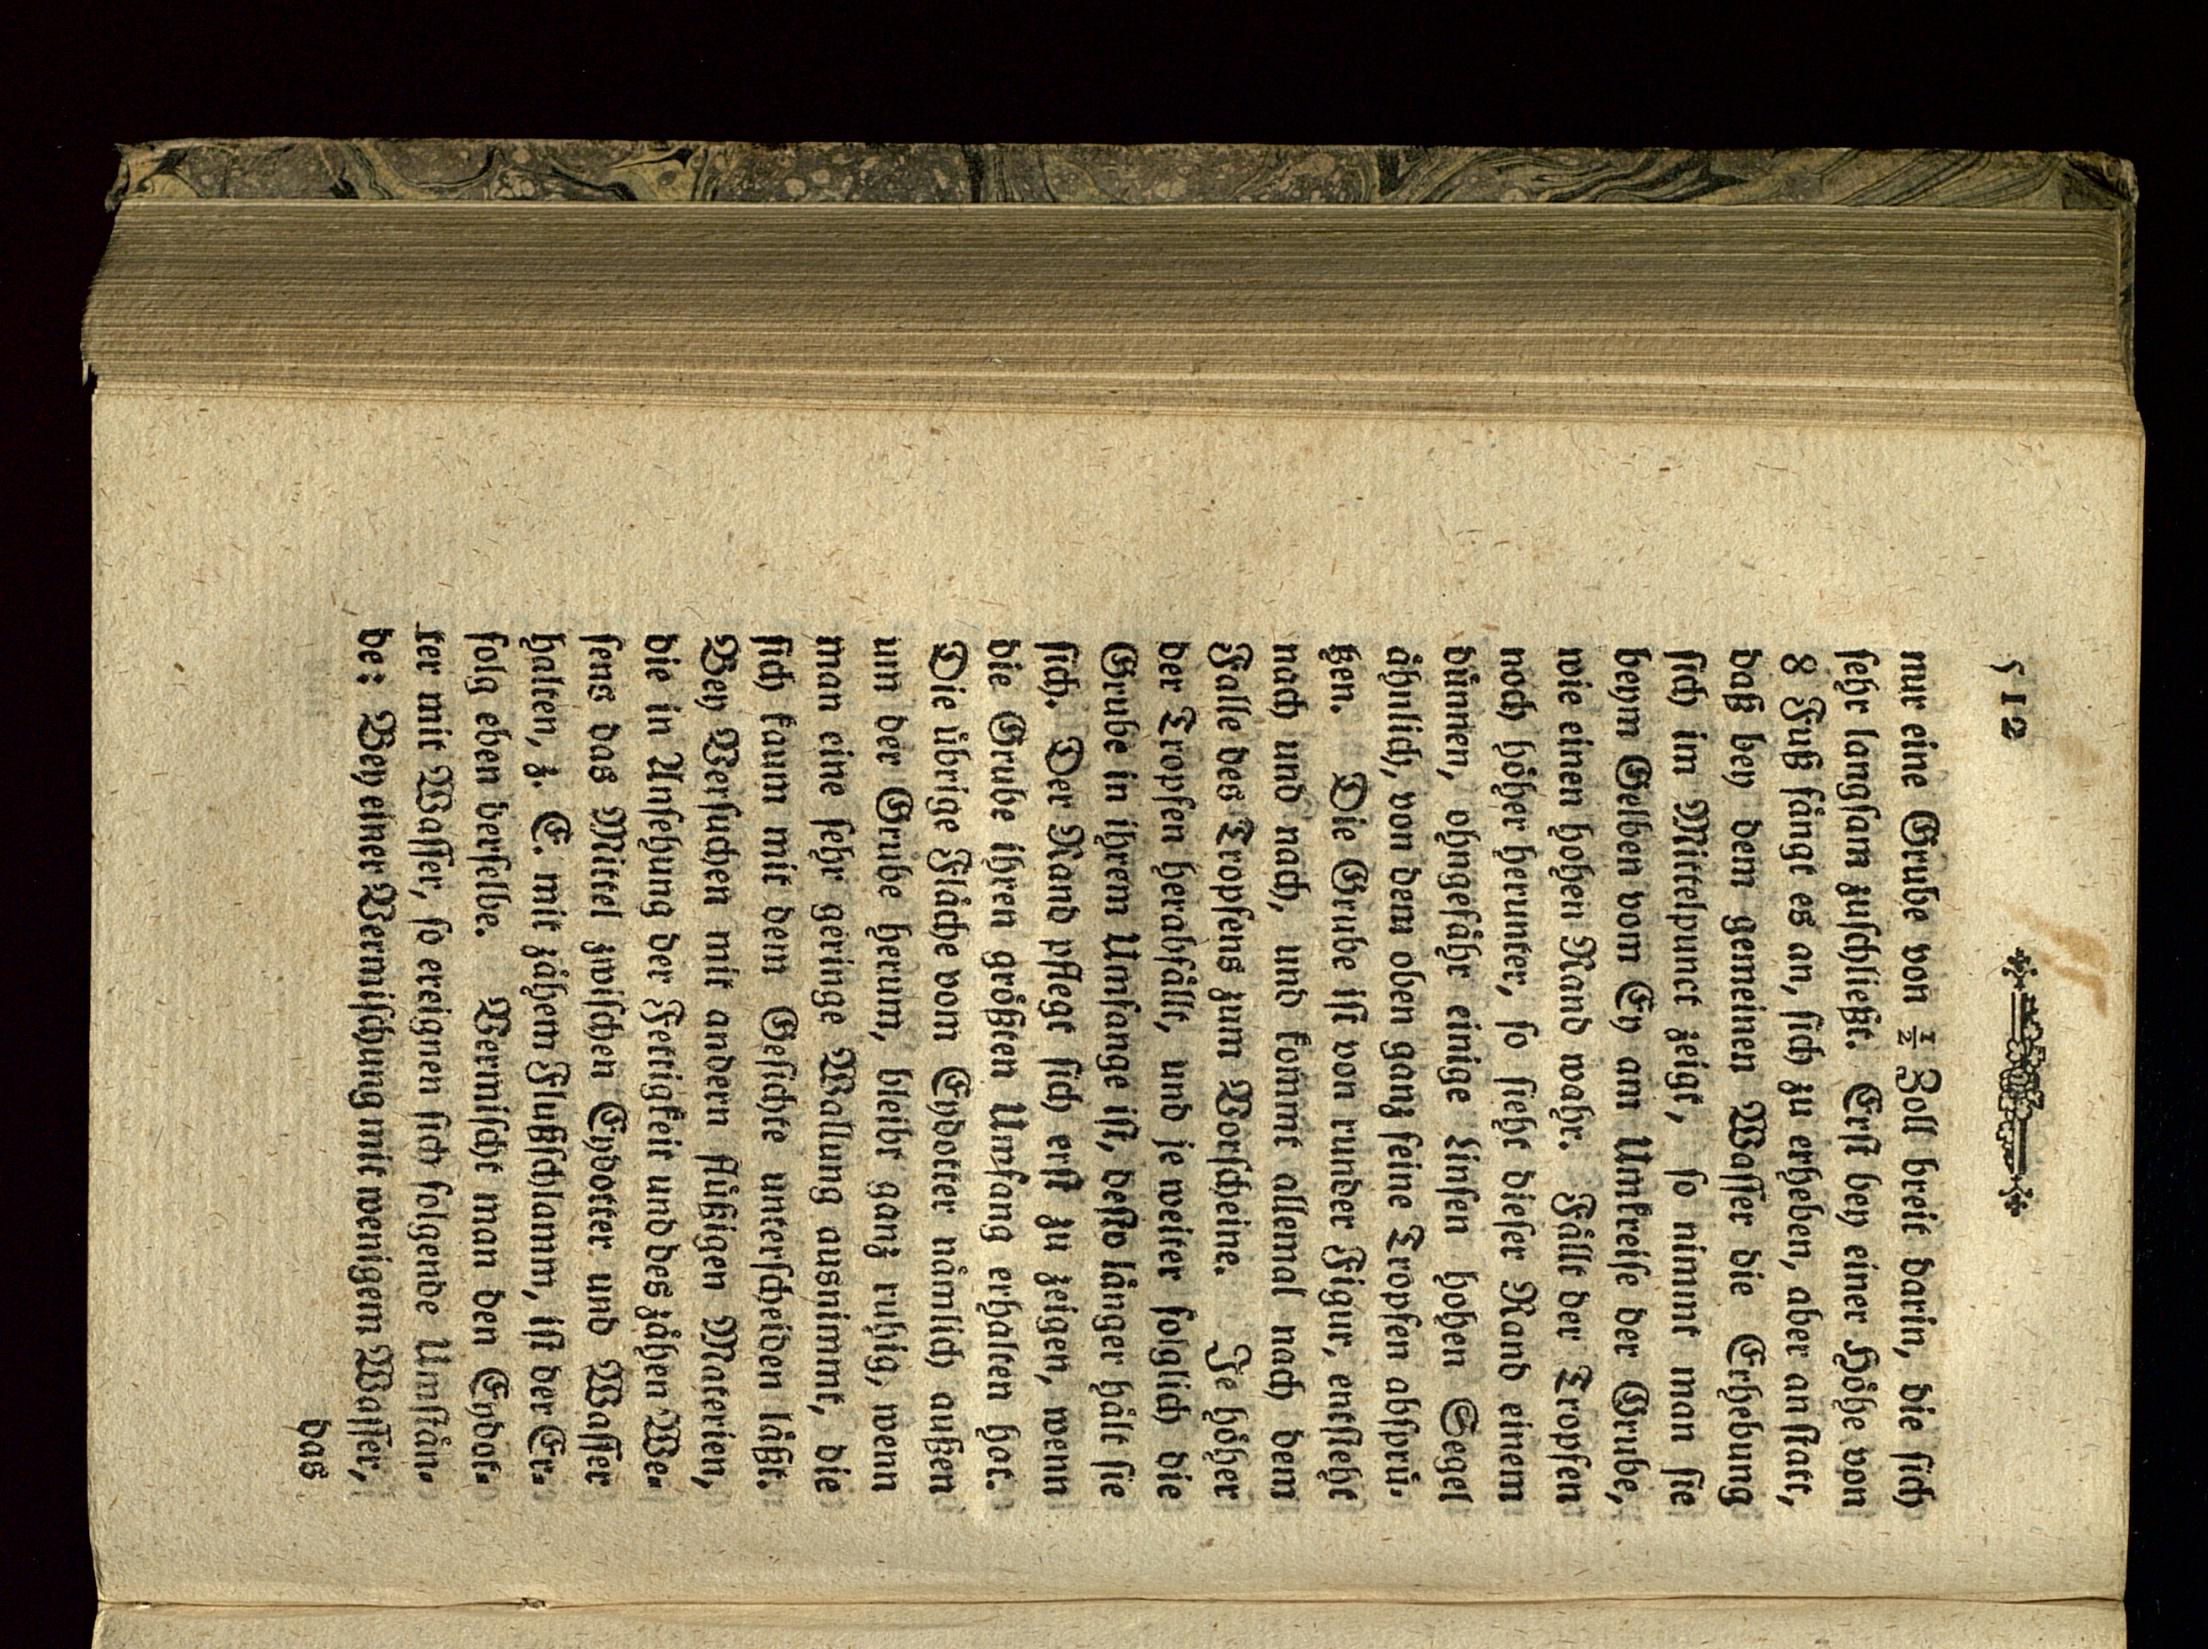 512
nur eine Grube von ½ Zoll breit darin, die ſich
ſehr langſam zuſchließt. Erſt bey einer Höhe von
8 Fuß fängt es an, ſich zu erheben, aber anſtatt,
daß bey dem gemeinen Waſſer die Erhebung
ſich im Mittelpunct zeigt, ſo nimmt man ſie
beym Gelben vom Ey am Umkreiſe der Grube,
wie einen hohen Rand wahr. Fällt der Tropfen
noch höher herunter, ſo ſieht dieſer Rand einem
dünnen, ohngefähr einige Linſen hohen Segel
ähnlich, von dem oben ganz feine Tropfen abſprü-
tzen. Die Grube iſt von runder Figur, entſteht
nach und nach, und kommt allemal nach dem
Falle des Tropfens zum Vorſcheine. Je höher
der Tropfen herabfällt, und je weiter folglich die
Grube in ihrem Umfange iſt, deſto länger hält ſie
ſich. Der Rand pflegt ſich erſt zu zeigen, wenn
die Grube ihren größten Umfang erhalten hat.
Die übrige Fläche vom Eydotter nämlich außen
um der Grube herum, bleibt ganz ruhig, wenn
man eine ſehr geringe Wallung ausnimmt, die
ſich kaum mit dem Geſichte unterſcheiden läßt.
Bey Verſuchen mit andern flüßigen Materien,
die in Anſehung der Fettigkeit und des zähen We-
ſens das Mittel zwiſchen Eydotter und Waſſer
halten, z. E. mit zähem Flußſchlamm, iſt der Er-
folg eben derſelbe. Vermiſcht man den Eydot-
ter mit Waſſer, ſo ereignen ſich folgende Umſtän-
de: Bey einer Vermiſchung mit wenigem Waſſer,
das